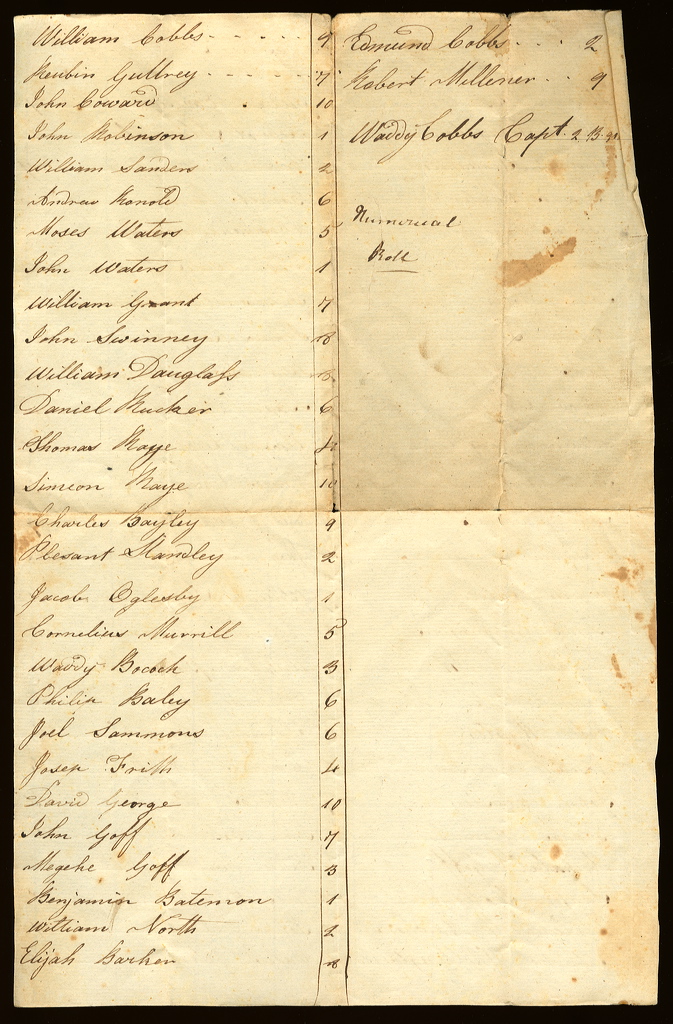 William Cobbs - - - - - - 9
Reubin Guttrey - - - - - - 7
John Coward 10
John Robinson 1
William Sanders 2
Andrew Ronold 6
Moses Waters 5
John Waters 1
William Grant 7
John Swinney 8
William Dauglass 3
Daniel Rucker 6
Thomas Raye 4
Simeon Raye 10
Charles Bayley 9
Plesant Standley 2
Jacob Oglesby 1
Cornelius Murrill 5
Waddy Bocock 3
Philip Baley 6
Joel Sammons 6
Josep Frith 4
David George 10
John Goff 7
Megehe Goff 3
Benjamin Batemon 1
William North 2
Elijah Barker 8
Edmund Cobbs - - - - 2
Robert Millener - - 9
Waddy Cobbs Capt. 2 B.
Numerical
Roll